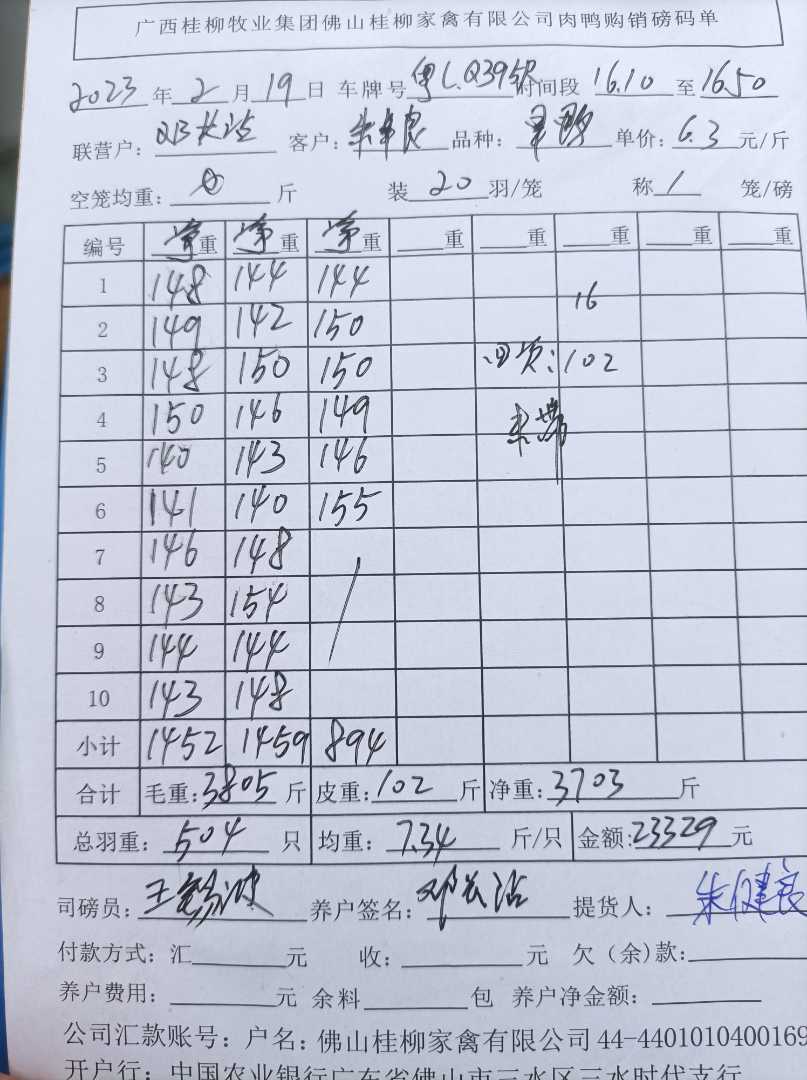 广西桂柳牧业集团佛山桂柳家禽有限公司肉鸭购销磅码单
2023 年 2 月 19 日 车牌号 粤L.Q39 时间段 16.10 至 16.50
联营户: 邓长沾 客户: 朱 良 品种: 单价: 6.3 元/斤
空笼均重: 斤 装 20 羽/笼 称 1 笼/磅
编号 重 重 重 重 重 重 重 重
1 148 144 144
16
2 149 142 150
3 148 150 150 : 102
4 150 146 149
5 140 143 146
6 141 140 155
7 146 148
8 143 154
9 144 144
10 143 148
小计 1452 1459 894
合计 毛重: 3805 斤 皮重: 102 斤 净重: 3703 斤
总羽重: 504 只 均重: 7.34 斤/只 金额: 23329 元
司磅员: 王 养户签名: 邓长沾 提货人: 朱健良
付款方式: 汇 元 收: 元 欠(余)款:
养户费用: 元 余料 包 养户净金额:
公司汇款账号: 户名: 佛山桂柳家禽有限公司 44-4401010400169
开户行: 中国农业银行广东省佛山市三水区三水时代支行